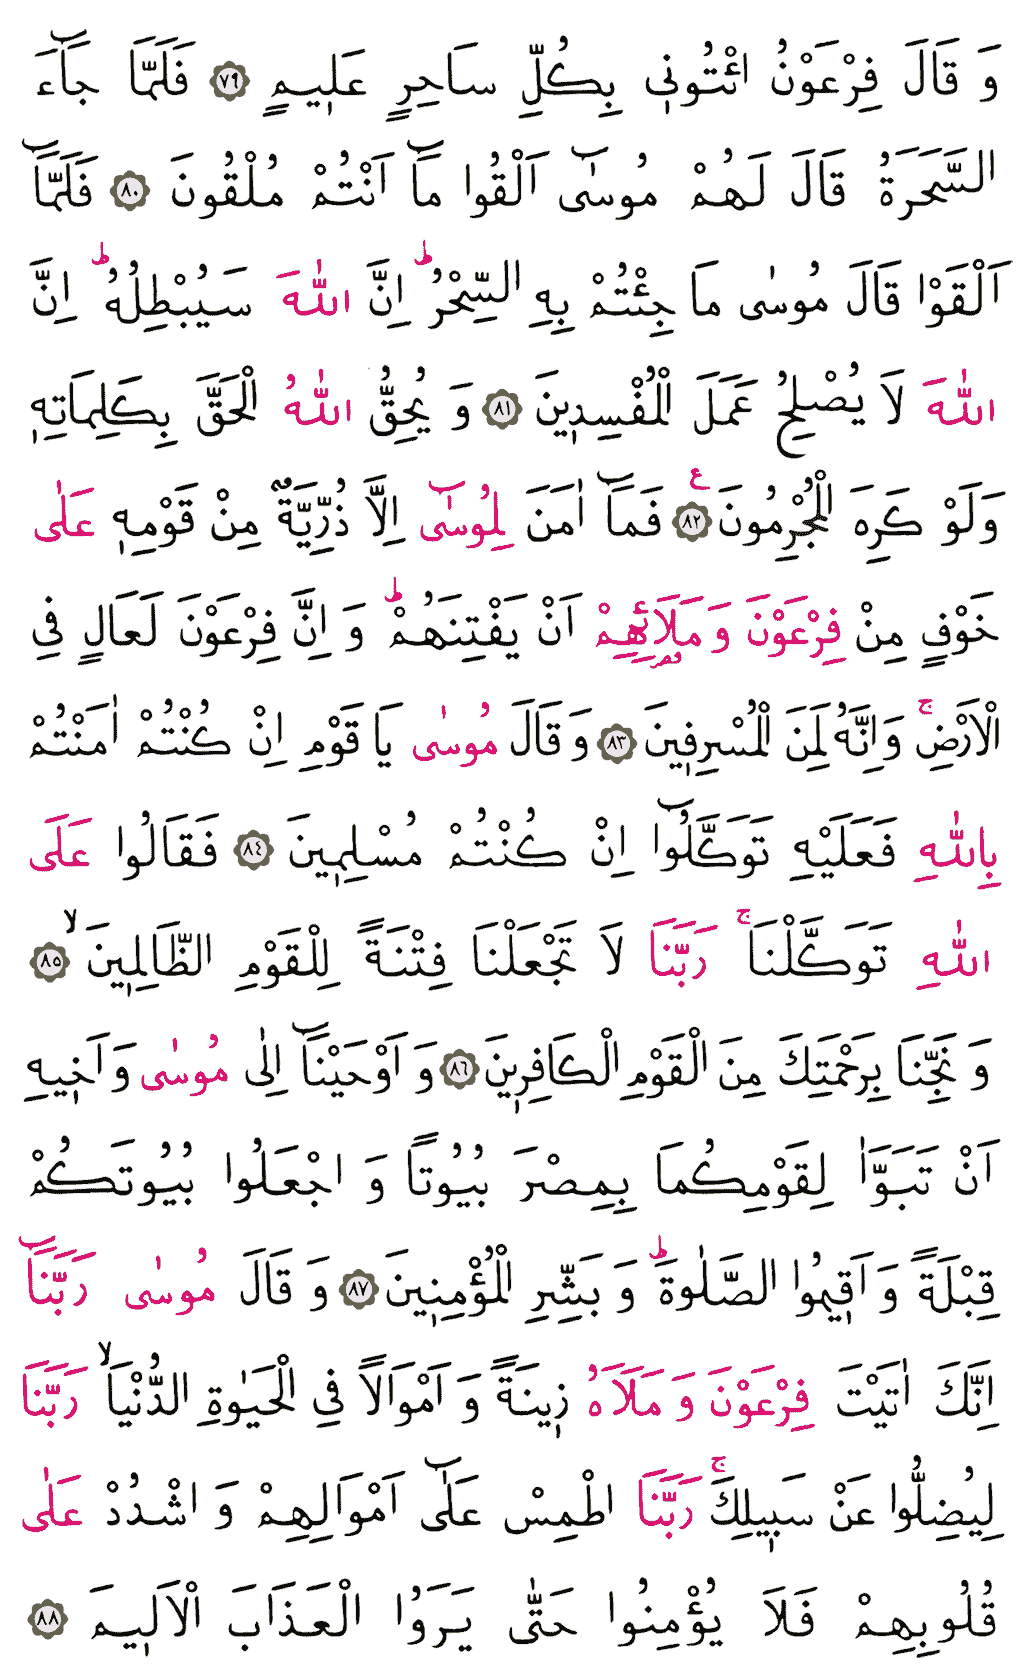 وَ قَالَ فِرْعَوْنُ ائْتُونٖي بِكُلِّ سَاحِرٍ عَلٖيمٍ ﴿٧٩﴾ فَلَمَّا جَٓاءَ
السَّحَرَةُ قَالَ لَهُمْ مُوسٰٓى اَلْقُوا مَٓا اَنْتُمْ مُلْقُونَ ﴿٨٠﴾ فَلَمَّٓا
اَلْقَوْا قَالَ مُوسٰى مَا جِئْتُمْ بِهِ السِّحْرُؕ اِنَّ اللّٰهَ سَيُبْطِلُهُؕ اِنَّ
اللّٰهَ لَا يُصْلِحُ عَمَلَ الْمُفْسِدٖينَ ﴿٨١﴾ وَ يُحِقُّ اللّٰهُ الْحَقَّ بِكَلِمَاتِهٖ
وَلَوْ كَرِهَ الْمُجْرِمُونَ ﴿٨٢﴾ ع فَمَٓا اٰمَنَ لِمُوسٰٓى اِلَّا ذُرِّيَّةٌ مِنْ قَوْمِهٖ عَلٰى
خَوْفٍ مِنْ فِرْعَوْنَ وَ مَلَا۬ئِهِمْ اَنْ يَفْتِنَهُمْؕ وَ اِنَّ فِرْعَوْنَ لَعَالٍ فِي
الْاَرْضِۚ وَاِنَّهُ لَمِنَ الْمُسْرِفٖينَ ﴿٨٣﴾ وَ قَالَ مُوسٰى يَا قَوْمِ اِنْ كُنْتُمْ اٰمَنْتُمْ
بِاللّٰهِ فَعَلَيْهِ تَوَكَّلُٓوا اِنْ كُنْتُمْ مُسْلِمٖينَ ﴿٨٤﴾ فَقَالُوا عَلَى
اللّٰهِ تَوَكَّلْنَاۚ رَبَّنَا لَا تَجْعَلْنَا فِتْنَةً لِلْقَوْمِ الظَّالِمٖينَۙ ﴿٨٥﴾
وَ نَجِّنَا بِرَحْمَتِكَ مِنَ الْقَوْمِ الْكَافِرٖينَ ﴿٨٦﴾ وَ اَوْحَيْنَٓا اِلٰى مُوسٰى وَ اَخٖيهِ
اَنْ تَبَوَّاٰ لِقَوْمِكُمَا بِمِصْرَ بُيُوتًا وَ اجْعَلُوا بُيُوتَكُمْ
قِبْلَةً وَ اَقٖيمُوا الصَّلٰوةَؕ وَ بَشِّرِ الْمُؤْمِنٖينَ ﴿٨٧﴾ وَ قَالَ مُوسٰى رَبَّنَٓا
اِنَّكَ اٰتَيْتَ فِرْعَوْنَ وَ مَلَاَهُ زٖينَةً وَ اَمْوَالًا فِي الْحَيٰوةِ الدُّنْيَاۙ رَبَّنَا
لِيُضِلُّوا عَنْ سَبٖيلِكَۚ رَبَّنَا اطْمِسْ عَلٰٓى اَمْوَالِهِمْ وَ اشْدُدْ عَلٰى
قُلُوبِهِمْ فَلَا يُؤْمِنُوا حَتّٰى يَرَوُا الْعَذَابَ الْاَلٖيمَ ﴿٨٨﴾